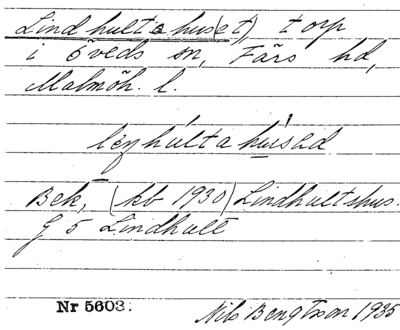 Lindhultahus(et), torp
i Öveds sn, Färs hd,
Malmöh. l.
Bek, (kb 1930) Lindhultshus.
G 5 Lindhult
Nr 5603.
Nils Bengtsson 1935